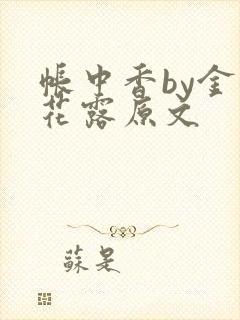 帐中香by金
花露原文
苏是